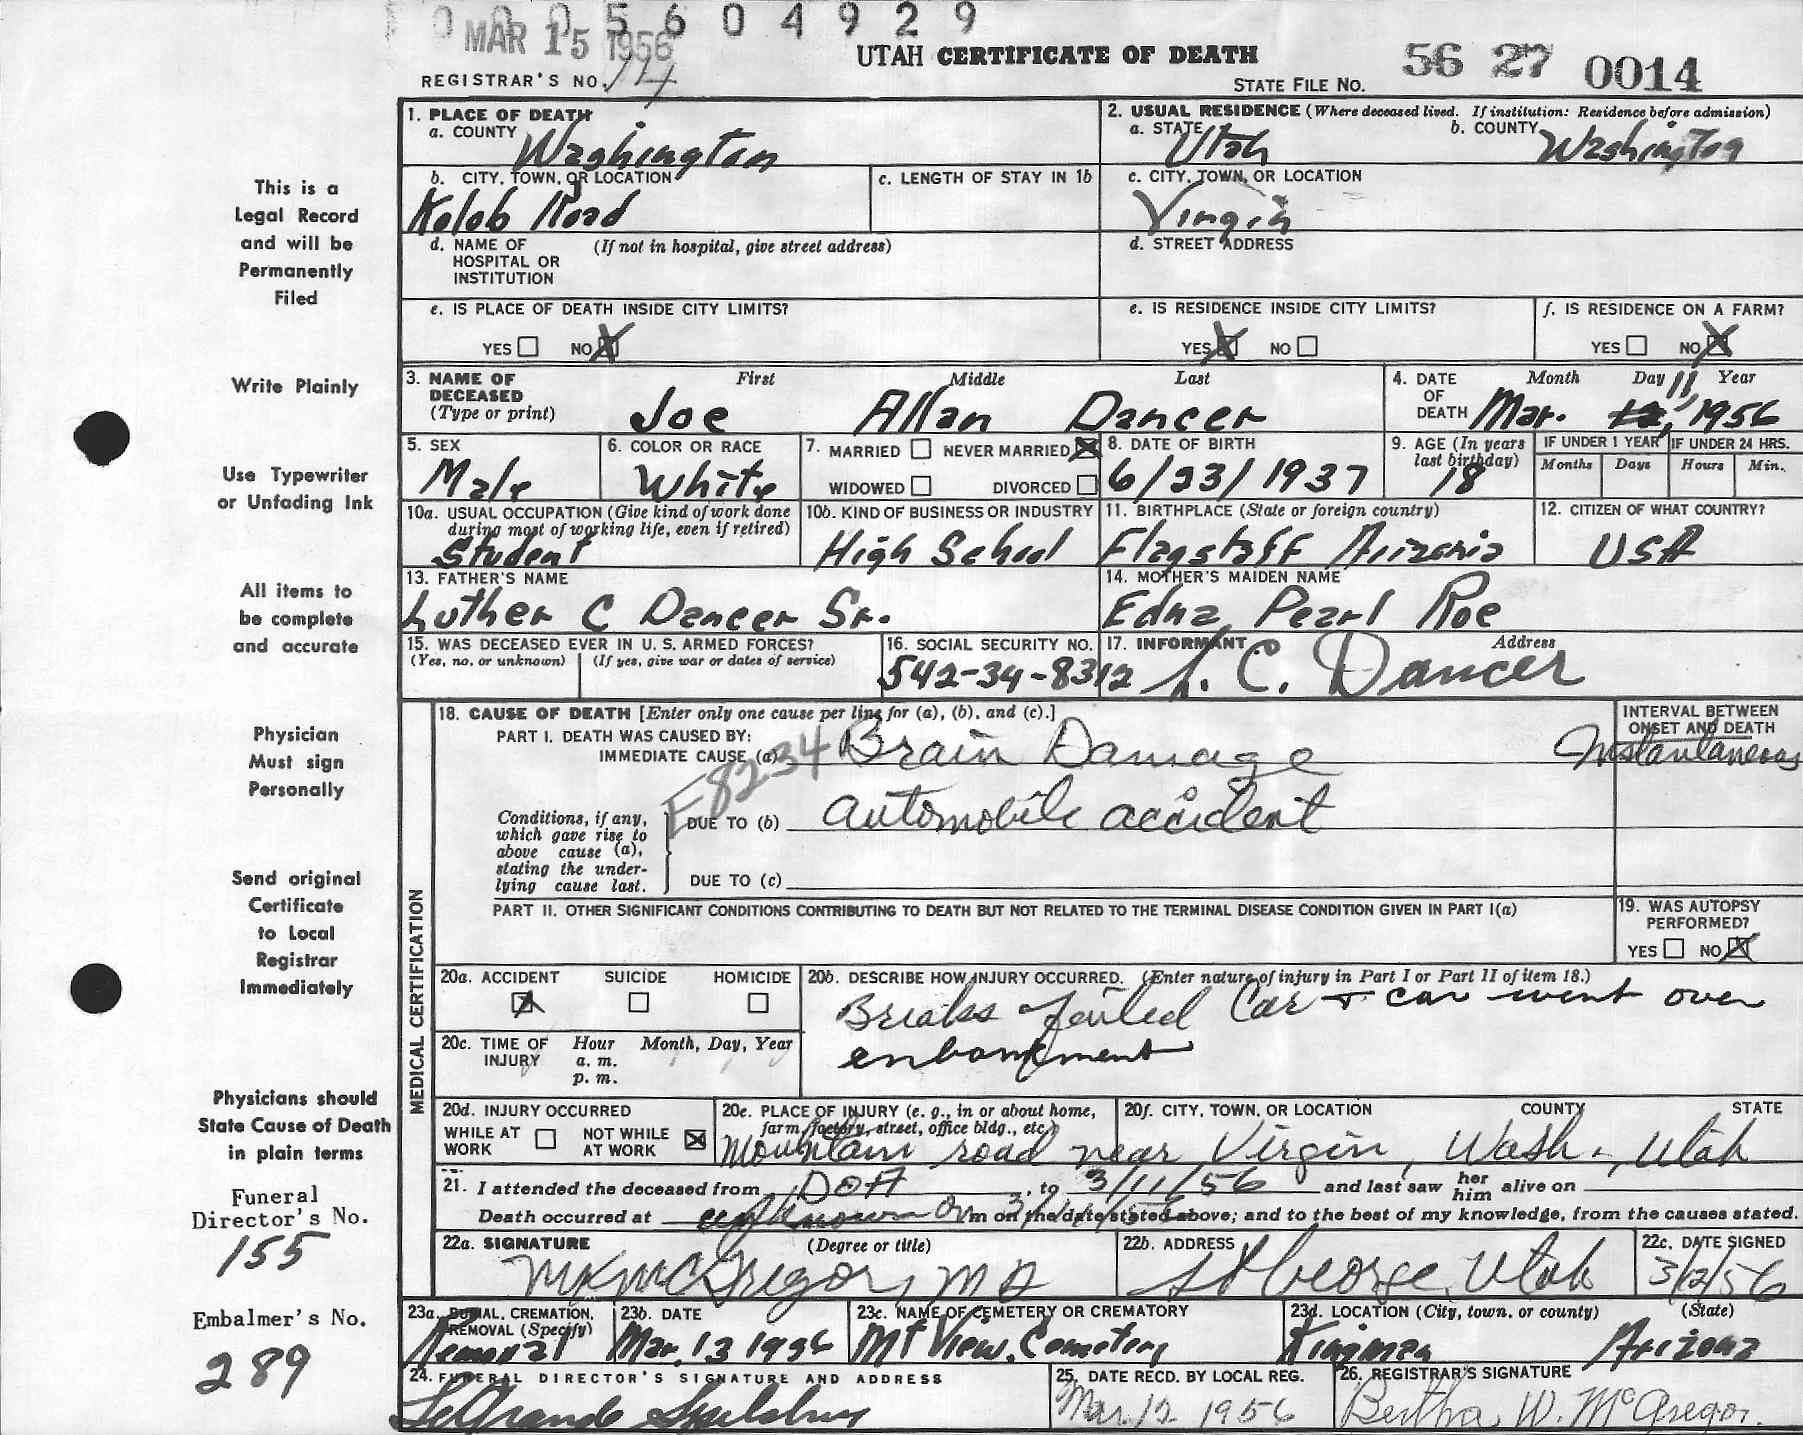 0005604929
MAR 15 1956
UTAH CERTIFICATE OF DEATH
REGISTRAR'S NO. 14
STATE FILE NO. 56 27 0014
This is a
Legal Record
and will be
Permanently
Filed
Write Plainly
Use Typewriter
or Unfading Ink
All items to
be complete
and accurate
Physician
Must sign
Personally
Send original
Certificate
to Local
Registrar
Immediately
Physicians should
State Cause of Death
in plain terms
Funeral
Director's No.
155
Embalmer's No.
289
1. PLACE OF DEATH
a. COUNTY Washington
2. USUAL RESIDENCE (Where deceased lived. If institution: Residence before admission)
a. STATE Utah b. COUNTY Washington
b. CITY, TOWN, OR LOCATION c. LENGTH OF STAY IN 1b
Kolob Road
c. CITY, TOWN, OR LOCATION
Virgin
d. NAME OF (If not in hospital, give street address)
HOSPITAL OR
INSTITUTION
d. STREET ADDRESS
e. IS PLACE OF DEATH INSIDE CITY LIMITS?
YES NO X
e. IS RESIDENCE INSIDE CITY LIMITS?
YES X NO
f. IS RESIDENCE ON A FARM?
YES NO X
3. NAME OF First Middle Last
DECEASED
(Type or print) Joe Allan Dancer
4. DATE Month Day Year
OF
DEATH Mar. 12, 11 1956
5. SEX
Male
6. COLOR OR RACE
White
7. MARRIED NEVER MARRIED X
WIDOWED DIVORCED
8. DATE OF BIRTH
6/23/1937
9. AGE (In years
last birthday)
18
IF UNDER 1 YEAR IF UNDER 24 HRS.
Months Days Hours Min.
10a. USUAL OCCUPATION (Give kind of work done
during most of working life, even if retired)
Student
10b. KIND OF BUSINESS OR INDUSTRY
High School
11. BIRTHPLACE (State or foreign country)
Flagstaff Arizona
12. CITIZEN OF WHAT COUNTRY?
USA
13. FATHER'S NAME
Luther C Dancer Sr.
14. MOTHER'S MAIDEN NAME
Edna Pearl Roe
15. WAS DECEASED EVER IN U. S. ARMED FORCES?
(Yes, no, or unknown) (If yes, give war or dates of service)
16. SOCIAL SECURITY NO.
542-34-8312
17. INFORMANT Address
L. C. Dancer
MEDICAL CERTIFICATION
18. CAUSE OF DEATH [Enter only one cause per line for (a), (b), and (c).]
PART I. DEATH WAS CAUSED BY:
IMMEDIATE CAUSE (a) Brain Damage
E8234
INTERVAL BETWEEN
ONSET AND DEATH
Instantaneous
Conditions, if any,
which gave rise to
above cause (a),
stating the under-
lying cause last.
DUE TO (b) Automobile accident
DUE TO (c)
PART II. OTHER SIGNIFICANT CONDITIONS CONTRIBUTING TO DEATH BUT NOT RELATED TO THE TERMINAL DISEASE CONDITION GIVEN IN PART I(a)
19. WAS AUTOPSY
PERFORMED?
YES NO X
20a. ACCIDENT SUICIDE HOMICIDE
X
20b. DESCRIBE HOW INJURY OCCURRED. (Enter nature of injury in Part I or Part II of item 18.)
Breaks failed Car & car went over
enbankment
20c. TIME OF Hour Month, Day, Year
INJURY a. m.
p. m.
20d. INJURY OCCURRED
WHILE AT NOT WHILE
WORK AT WORK X
20e. PLACE OF INJURY (e. g., in or about home,
farm, factory, street, office bldg., etc.)
Mountain road near
20f. CITY, TOWN, OR LOCATION COUNTY STATE
Virgin, Wash., Utah
21. I attended the deceased from DOA, to 3/11/56 and last saw her him alive on
Death occurred at unknown m on the date stated above; and to the best of my knowledge, from the causes stated.
22a. SIGNATURE (Degree or title)
MK McGregor, MD
22b. ADDRESS
St George, Utah
22c. DATE SIGNED
3/12/56
23a. BURIAL, CREMATION,
REMOVAL (Specify)
Removal
23b. DATE
Mar. 13 1956
23c. NAME OF CEMETERY OR CREMATORY
Mt View Cemetery
23d. LOCATION (City, town, or county) (State)
Kingman Arizona
24. FUNERAL DIRECTOR'S SIGNATURE AND ADDRESS
LeGrande Spilsbury
25. DATE RECD. BY LOCAL REG.
Mar 12 1956
26. REGISTRAR'S SIGNATURE
Bertha W. McGregor.